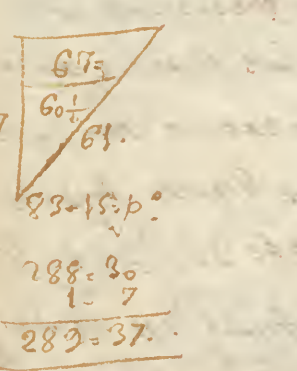 67=
60 1/2
61.
83-15=p º
288=30
1- 7
289=37.